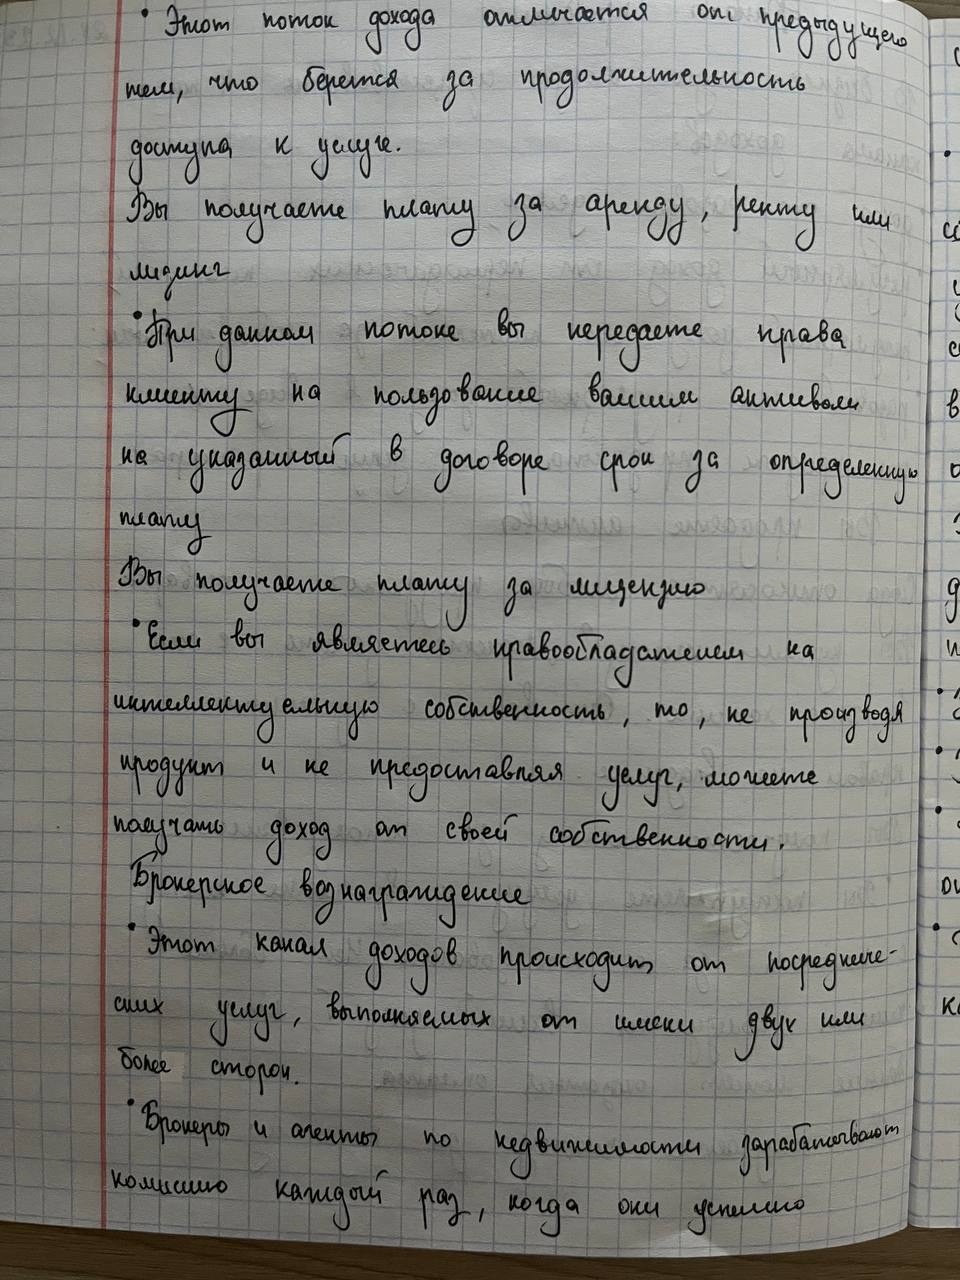 • Этот поток дохода отличается от предыдущего
тем, что берется за продолжительность
доступа к услуге.
Вы получаете плату за аренду, ренту или
лизинг
• При данном потоке вы передаете права
клиенту на пользование вашим активом
на указанный в договоре срок за определенную
плату
Вы получаете плату за лицензию
• Если вы являетесь правообладателем на
интеллектуальную собственность, то, не производя
продукт и не предоставляя услуг, можете
получать доход от своей собственности.
Брокерское вознаграждение
• Этот канал доходов происходит от посредниче-
ских услуг, выполняемых от имени двух или
более сторон.
• Брокеры и агенты по недвижимости зарабатывают
комиссию каждый раз, когда они успешно